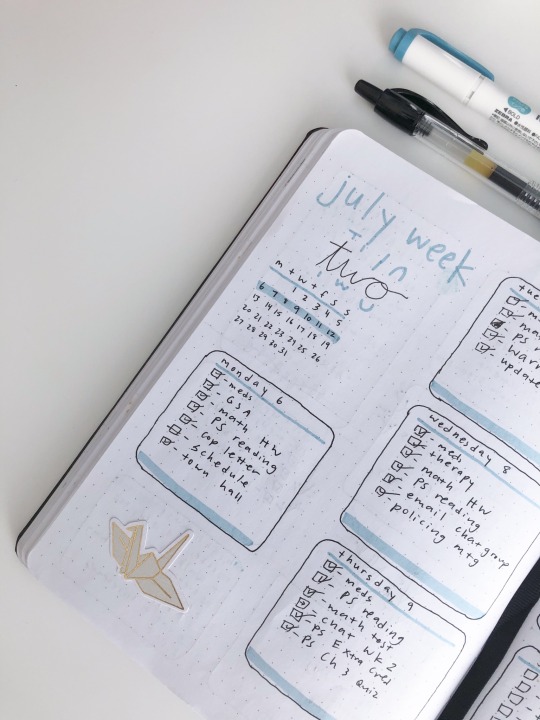 july week
two
m t w t f s s
1 2 3 4 5
6 7 8 9 10 11 12
13 14 15 16 17 18 19
20 21 22 23 24 25 26
27 28 29 30 31
monday 6
- meds
- GSA
- math HW
- PS reading
- cop letter
- schedule
- town hall
wednesday 8
- meds
- therapy
- math HW
- PS reading
- email chat group
- policing mtg
thursday 9
- meds
- PS reading
- math test
- chat wk 2
- PS Extra Cred
- PS Ch 3 Quiz
BOLD